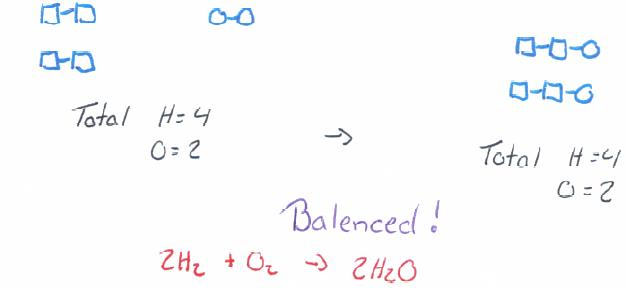 Total H=4
O=2
→
Total H=4
O=2
Balenced!
2H₂ + O₂ → 2H2O